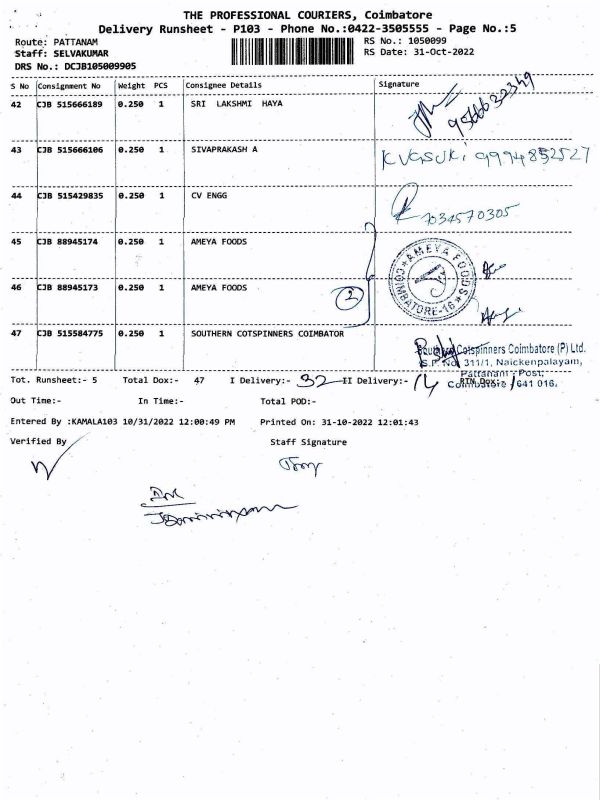 THE PROFESSIONAL COURIERS, Coimbatore
Delivery Runsheet - P103 - Phone No.:0422-3505555 - Page No.:5
Route: PATTANAM
RS No.: 1050099
Staff: SELVAKUMAR
RS Date: 31-Oct-2022
DRS No.: DCJB105009905
S No Consignment No Weight PCS Consignee Details Signature
42 CJB 515666189 0.250 1 SRI LAKSHMI HAYA
43 CJB 515666106 0.250 1 SIVAPRAKASH A 9994852527
44 CJB 515429835 0.250 1 CV ENGG 7034570305
45 CJB 88945174 0.250 1 AMEYA FOODS
AMEYA FOODS
COIMBATORE-16
46 CJB 88945173 0.250 1 AMEYA FOODS 2
47 CJB 515584775 0.250 1 SOUTHERN COTSPINNERS COIMBATOR
Southern Cotspinners Coimbatore (P) Ltd.
S.F. No. 311/1, Naickenpalayam,
Pattanam Post,
Coimbatore 641 016.
Tot. Runsheet:- 5 Total Dox:- 47 I Delivery:- 32 II Delivery:- 14 RTN Dox:- 1
Out Time:- In Time:- Total POD:-
Entered By :KAMALA103 10/31/2022 12:00:49 PM Printed On: 31-10-2022 12:01:43
Verified By Staff Signature